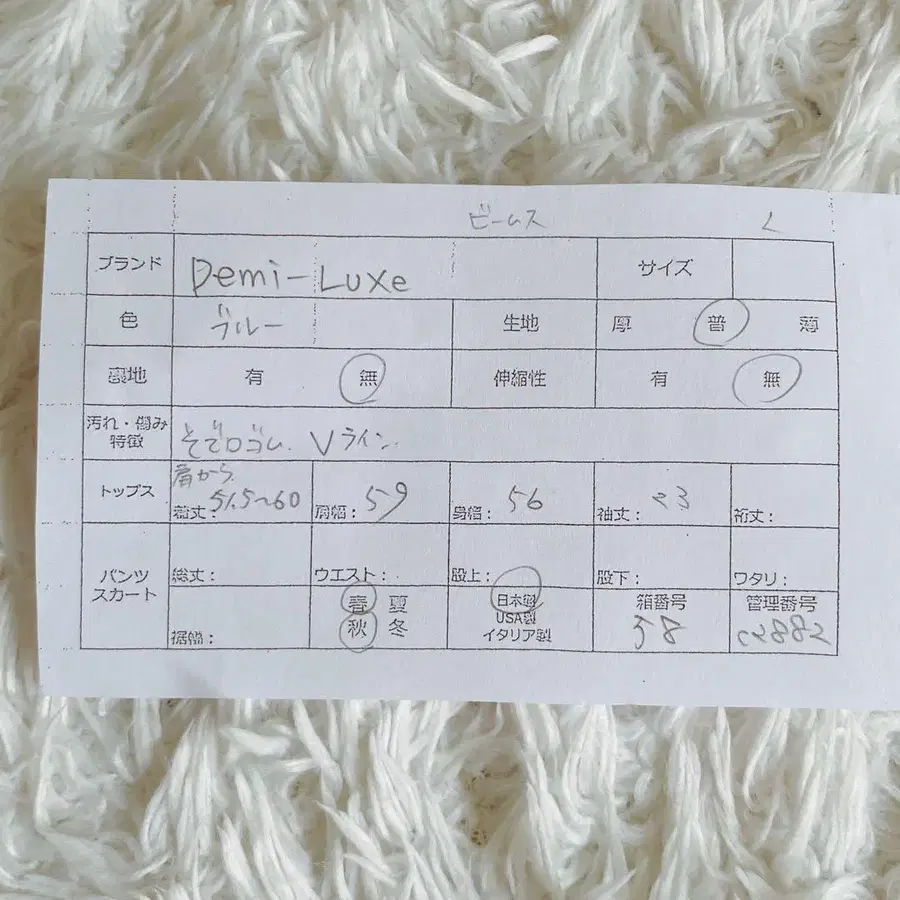 ビームス く
ブランド Demi-Luxe サイズ
色 ブルー 生地 厚 普 薄
裏地 有 無 伸縮性 有 無
汚れ・傷み
特徴 そで口ゴム. Vライン.
肩から
トップス 着丈: 51.5~60 肩幅: 59 身幅: 56 袖丈: 23 裄丈:
パンツ
スカート 総丈: ウエスト: 股上: 股下: ワタリ:
裾幅: 春 夏
秋 冬
日本製
USA製
イタリア製
箱番号
58
管理番号
C2882